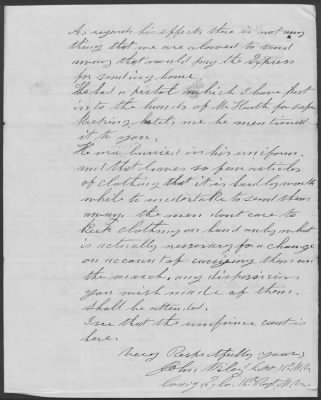 As regards his effects there is not any
thing that we are alowed to send
away that would pay the Express
for sending home.
He had a pistol which I have put
in to the hands of Mr for safe
keeping he tells me he mentioned
it to you.
He was buried in his uniform
and that leaves so few articles
of clothing that it is hardly worth
while to undertake to send them
away, the men dont care to
keep clothing on hand only what
is actually nessesary for a change
on account of carrying them on
the march, any disposision
you wish made of them
shall be attended.
I see that the uniform coat is
here.
Very Respectfully yours,
John Wiley Capt
Comdg Co. Regt